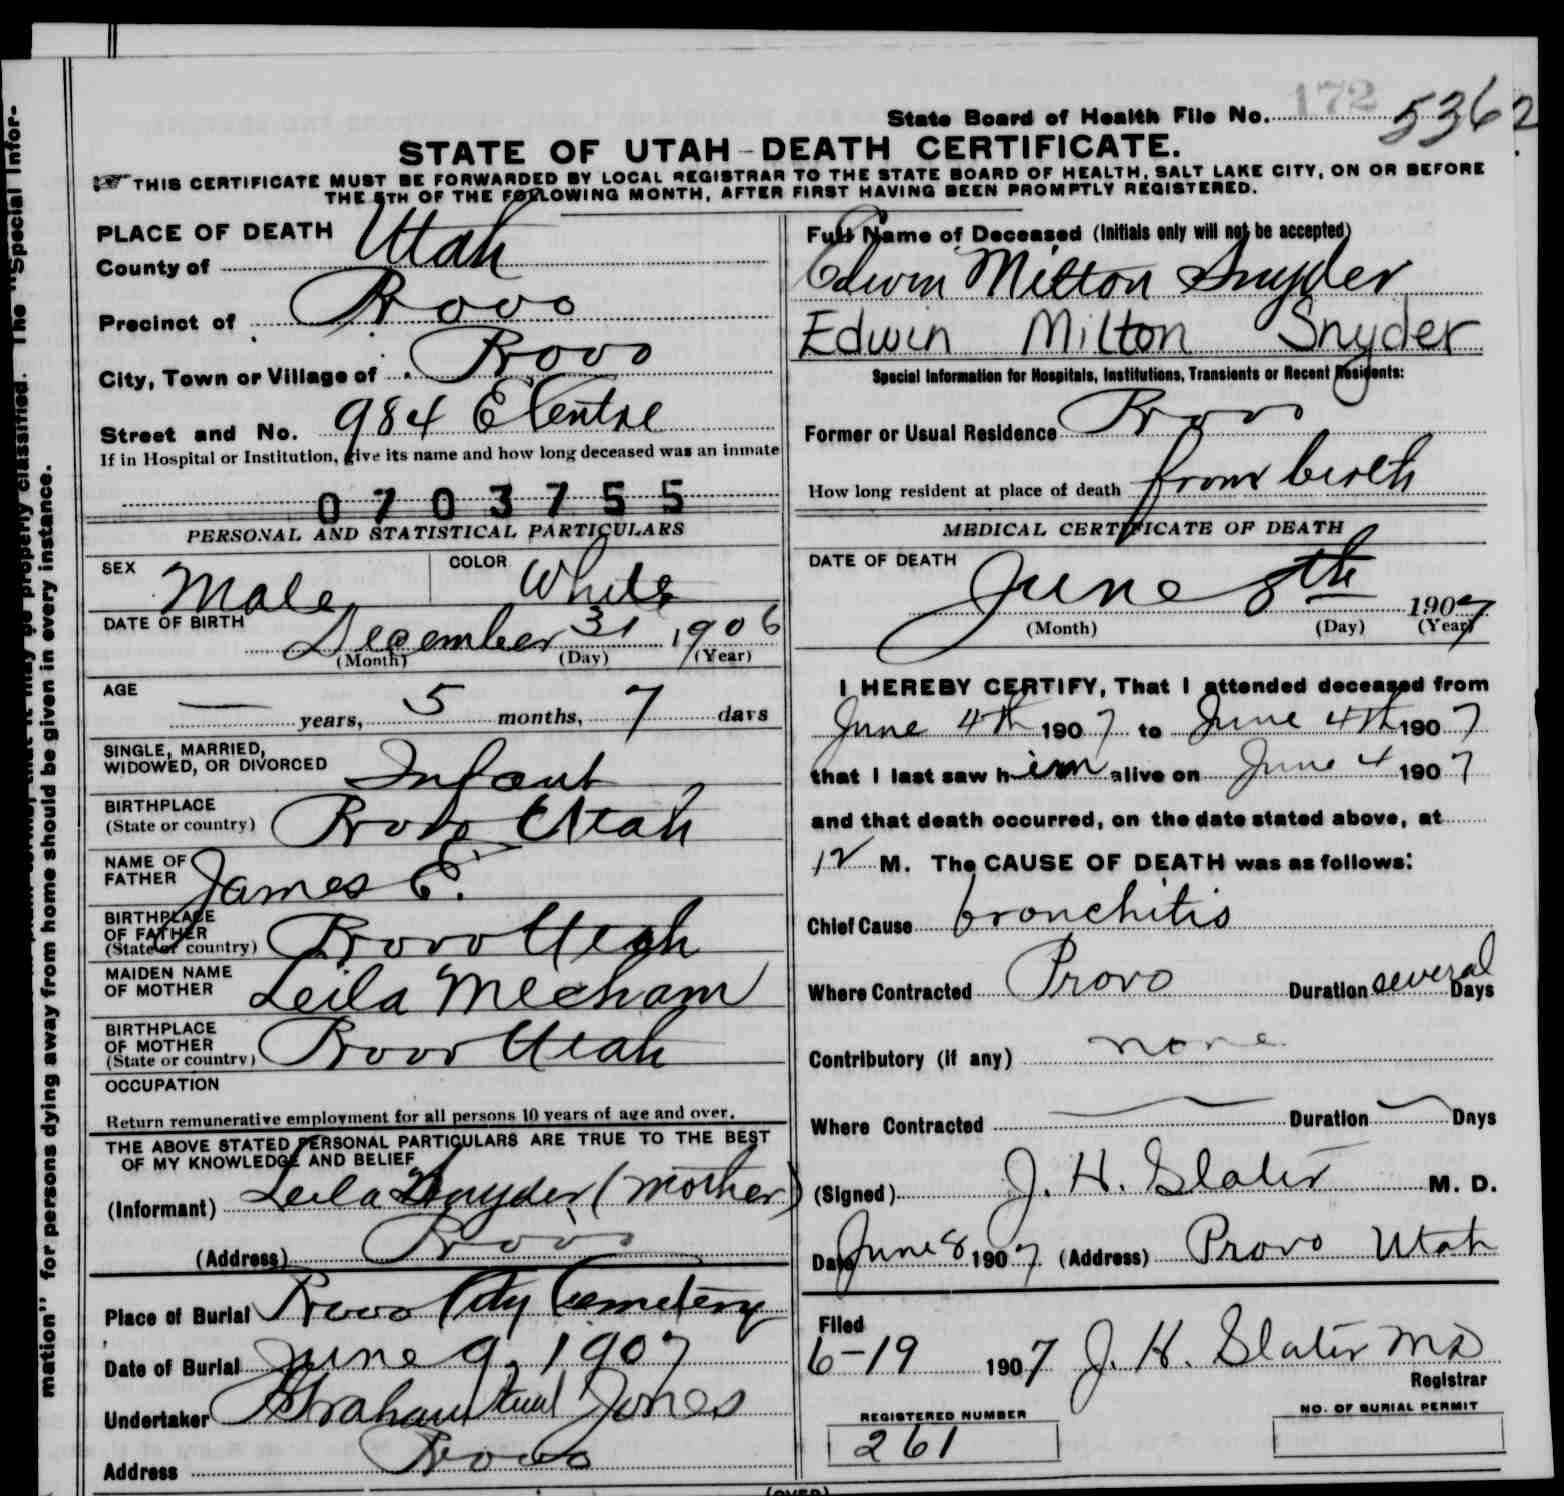 172 5362
State Board of Health File No.
STATE OF UTAH-DEATH CERTIFICATE.
THIS CERTIFICATE MUST BE FORWARDED BY LOCAL REGISTRAR TO THE STATE BOARD OF HEALTH, SALT LAKE CITY, ON OR BEFORE
THE 5TH OF THE FOLLOWING MONTH, AFTER FIRST HAVING BEEN PROMPTLY REGISTERED.
PLACE OF DEATH
County of Utah
Precinct of Provo
City, Town or Village of Provo
Street and No. 984 E Centre
If in Hospital or Institution, give its name and how long deceased was an inmate
0703755
PERSONAL AND STATISTICAL PARTICULARS
SEX Male COLOR White
DATE OF BIRTH December 31 1906
(Month) (Day) (Year)
AGE
— years, 5 months, 7 days
SINGLE, MARRIED,
WIDOWED, OR DIVORCED Infant
BIRTHPLACE
(State or country) Provo Utah
NAME OF
FATHER James E.
BIRTHPLACE
OF FATHER
(State or country) Provo Utah
MAIDEN NAME
OF MOTHER Leila Mecham
BIRTHPLACE
OF MOTHER
(State or country) Provo Utah
OCCUPATION
Return remunerative employment for all persons 10 years of age and over.
THE ABOVE STATED PERSONAL PARTICULARS ARE TRUE TO THE BEST
OF MY KNOWLEDGE AND BELIEF
(Informant) Leila Snyder (mother)
(Address) Provo
Place of Burial Provo City Cemetery
Date of Burial June 9, 1907
Undertaker Graham Jones
Address Provo
Full Name of Deceased (Initials only will not be accepted)
Edwin Milton Snyder
Edwin Milton Snyder
Special Information for Hospitals, Institutions, Transients or Recent Residents:
Former or Usual Residence Provo
How long resident at place of death from birth
MEDICAL CERTIFICATE OF DEATH
DATE OF DEATH
June 8th 1907
(Month) (Day) (Year)
I HEREBY CERTIFY, That I attended deceased from
June 4th 1907 to June 4th 1907
that I last saw him alive on June 4 1907
and that death occurred, on the date stated above, at
12 M. The CAUSE OF DEATH was as follows:
Chief Cause bronchitis
Where Contracted Provo Duration several Days
Contributory (if any) none
Where Contracted — Duration — Days
(Signed) J. H. Slater M. D.
Date June 8 1907 (Address) Provo Utah
Filed
6-19 1907 J. H. Slater MD
Registrar
REGISTERED NUMBER
261
NO. OF BURIAL PERMIT
(OVER)
properly classified. The "Special Infor-
mation" for persons dying away from home should be given in every instance.